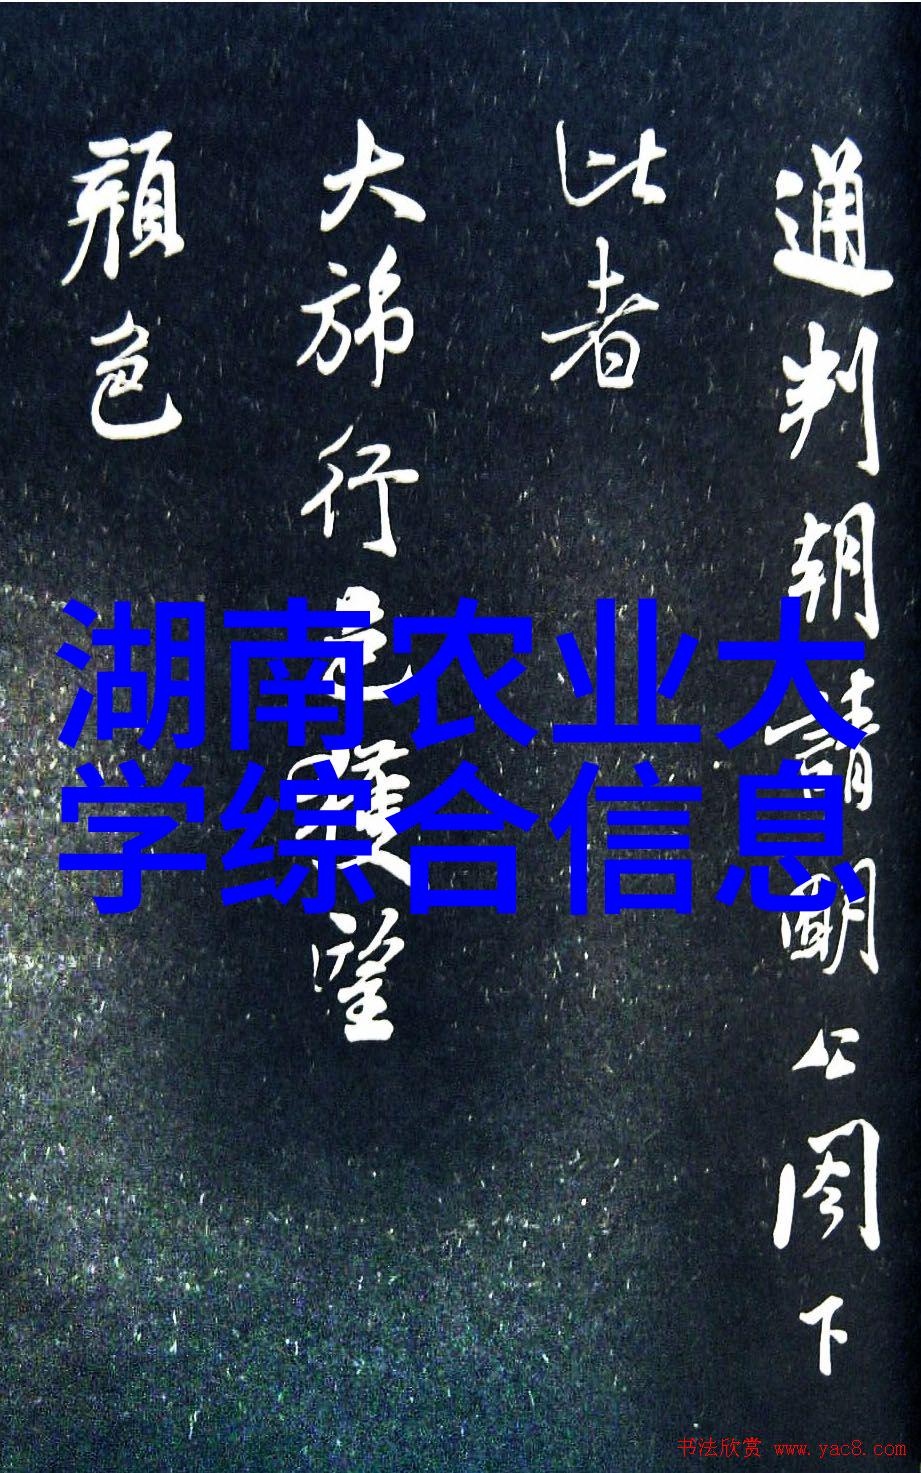 通判朝請明公閤下
比者
大旆行色獲望
顏色
湖南农业大
学综合信息
书法欣赏 www.yac8.com